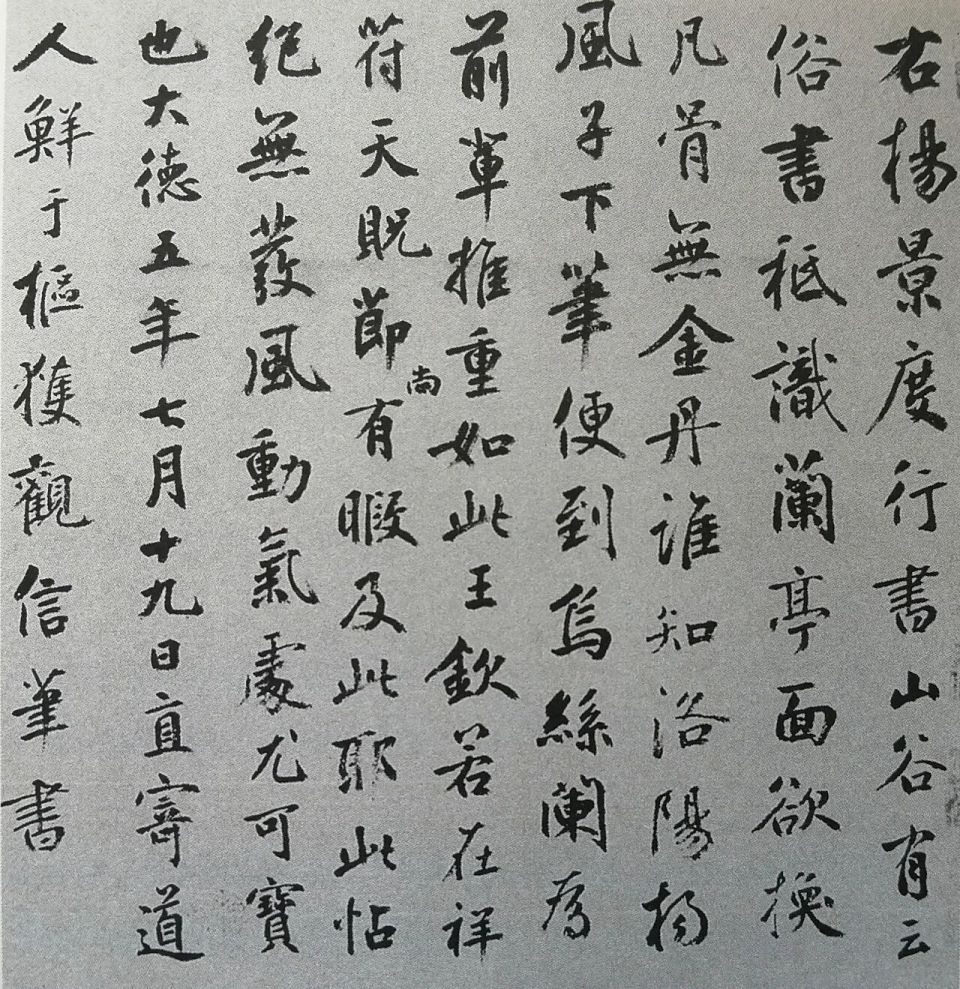 右楊景度行書山谷有云
俗書祇識蘭亭面欲換
凡骨無金丹誰知洛陽楊
風子下筆便到烏絲闌為
前軰推重如此王欽若在祥
符天貺節尚有暇及此耶此帖
絕無發風動氣處尤可寶
也大德五年七月十九日直寄道
人鮮于樞獲觀信筆書